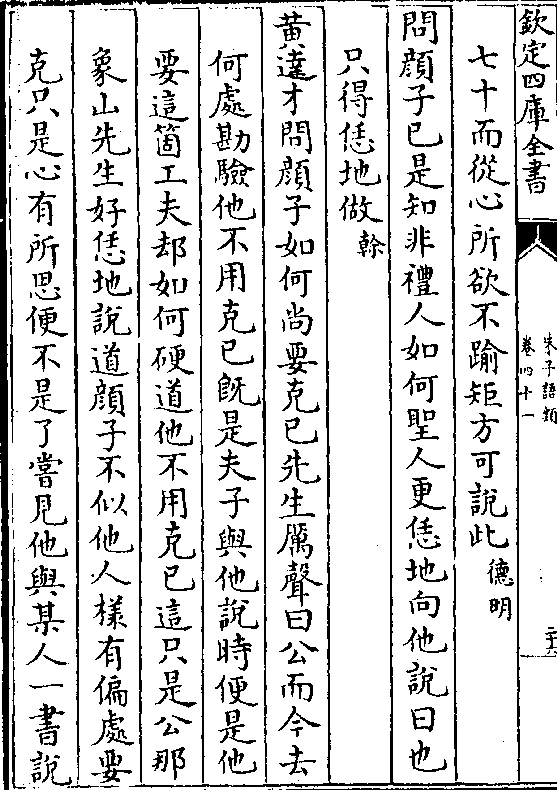 欽定四庫全書
朱子語類
卷四十一
二十六
七十而從心所欲不踰矩方可說此德明
問顔子已是知非禮人如何聖人更恁地向他說曰也
只得恁地做榦
黄達才問顔子如何尚要克已先生厲聲曰公而今去
何處勘驗他不用克已既是夫子與他說時便是他
要這箇工夫却如何硬道他不用克已這只是公那
象山先生好恁地說道顔子不似他人様有偏處要
克只是心有所思便不是了嘗見他與某人一書說